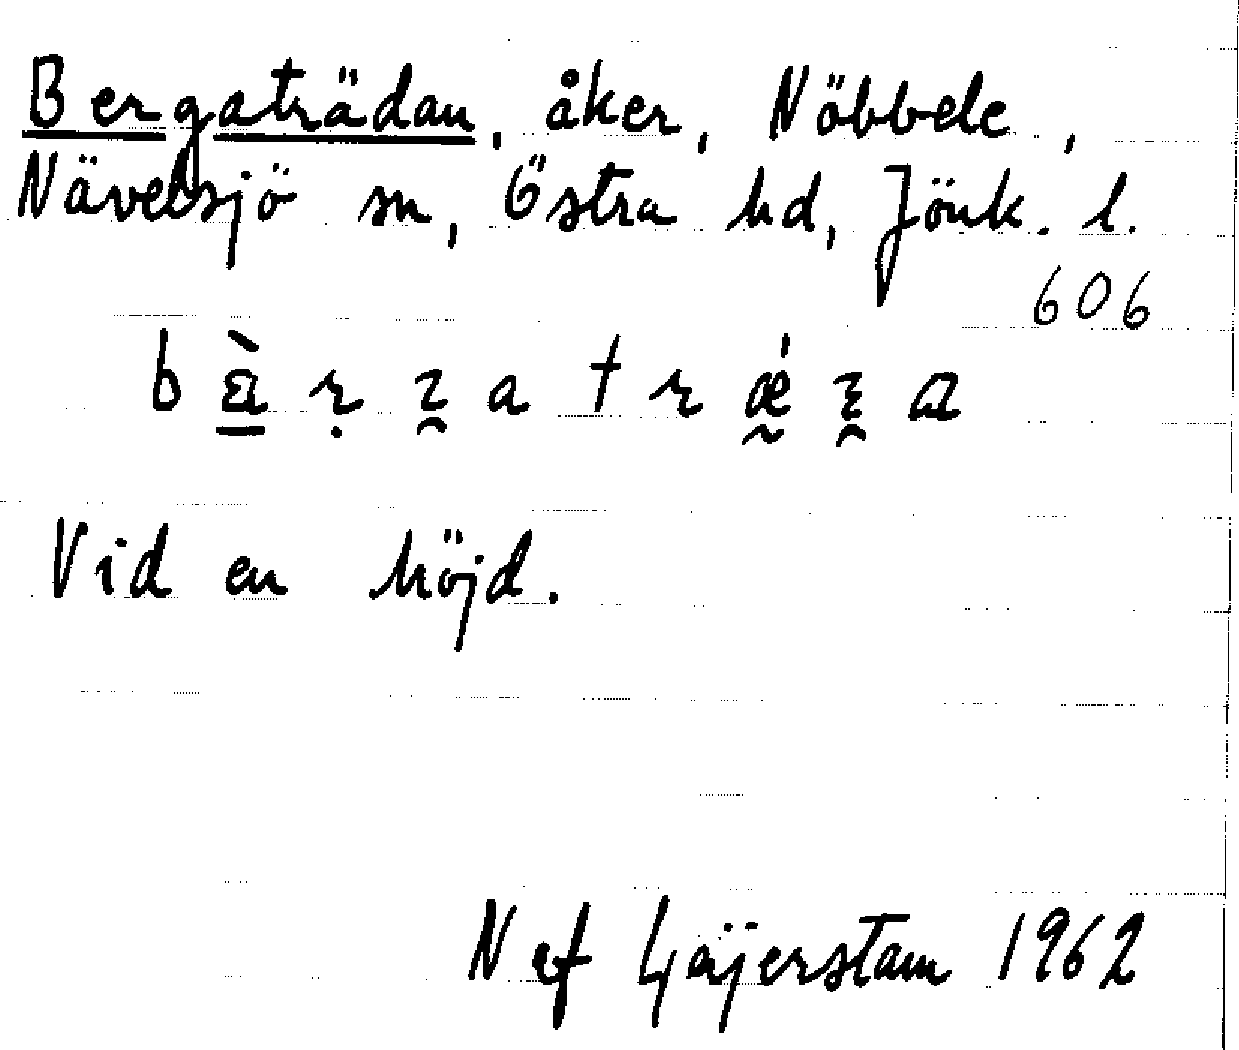 Bergaträdan, åker, Nöbbele,
Nävelsjö sn, Östra hd, Jönk. l.
606
Vid en höjd.
Nef Gäijerstam 1962